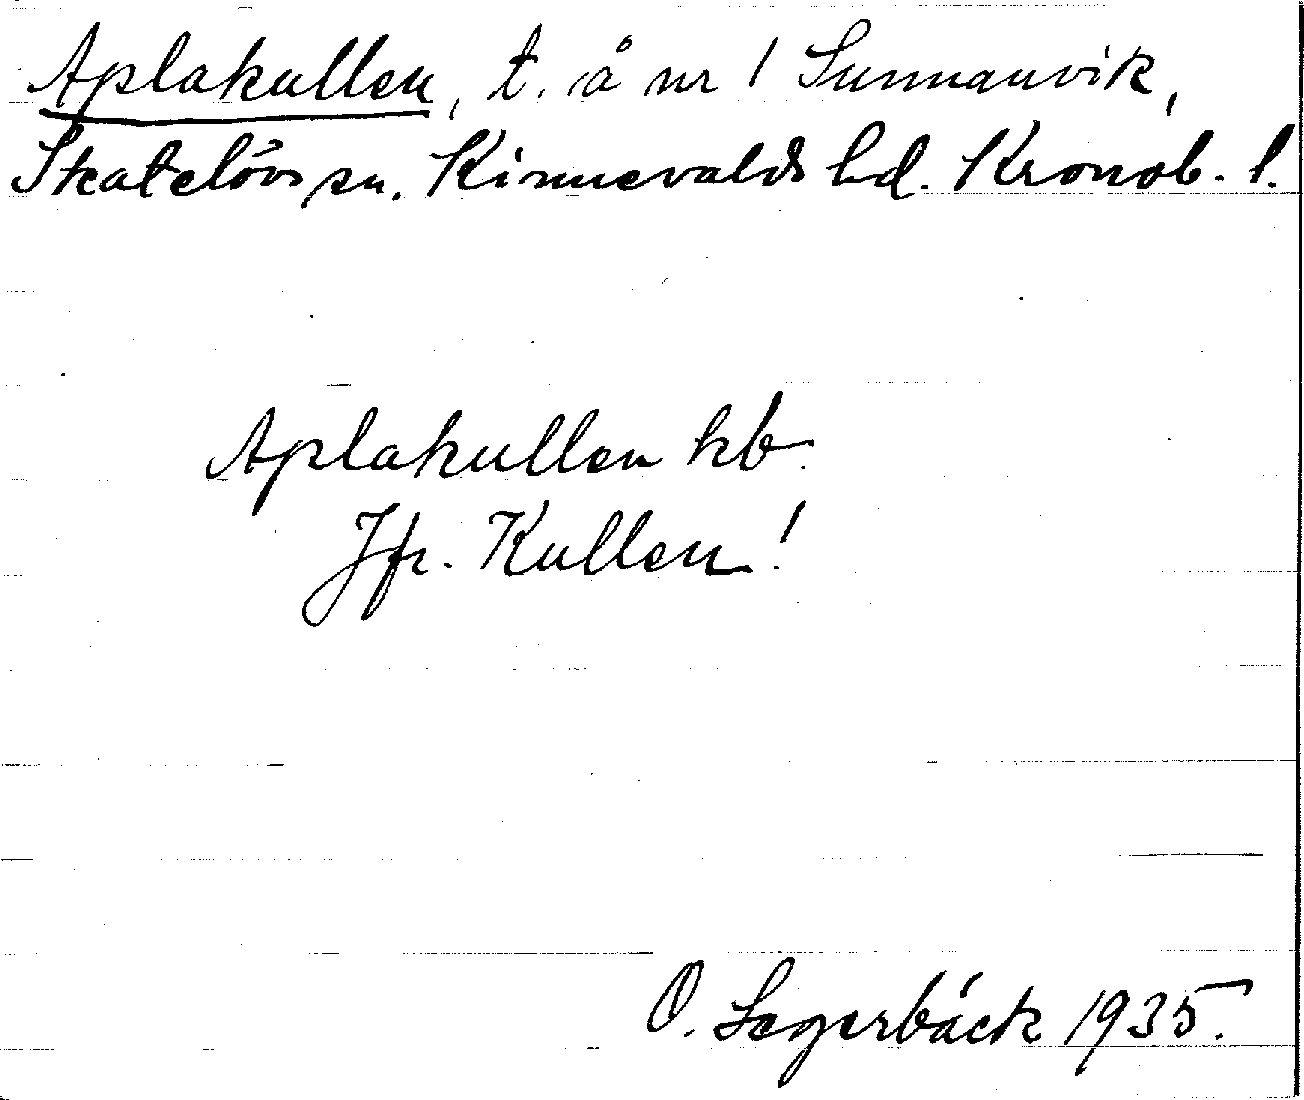 Aplakullen, t. å nr 1 Sunnanvik,
Skatelövs sn. Kinnevalds hd. Kronob. l.
Aplakullen kb.
Jfr. Kullen!
O. Segerbäck 1935.